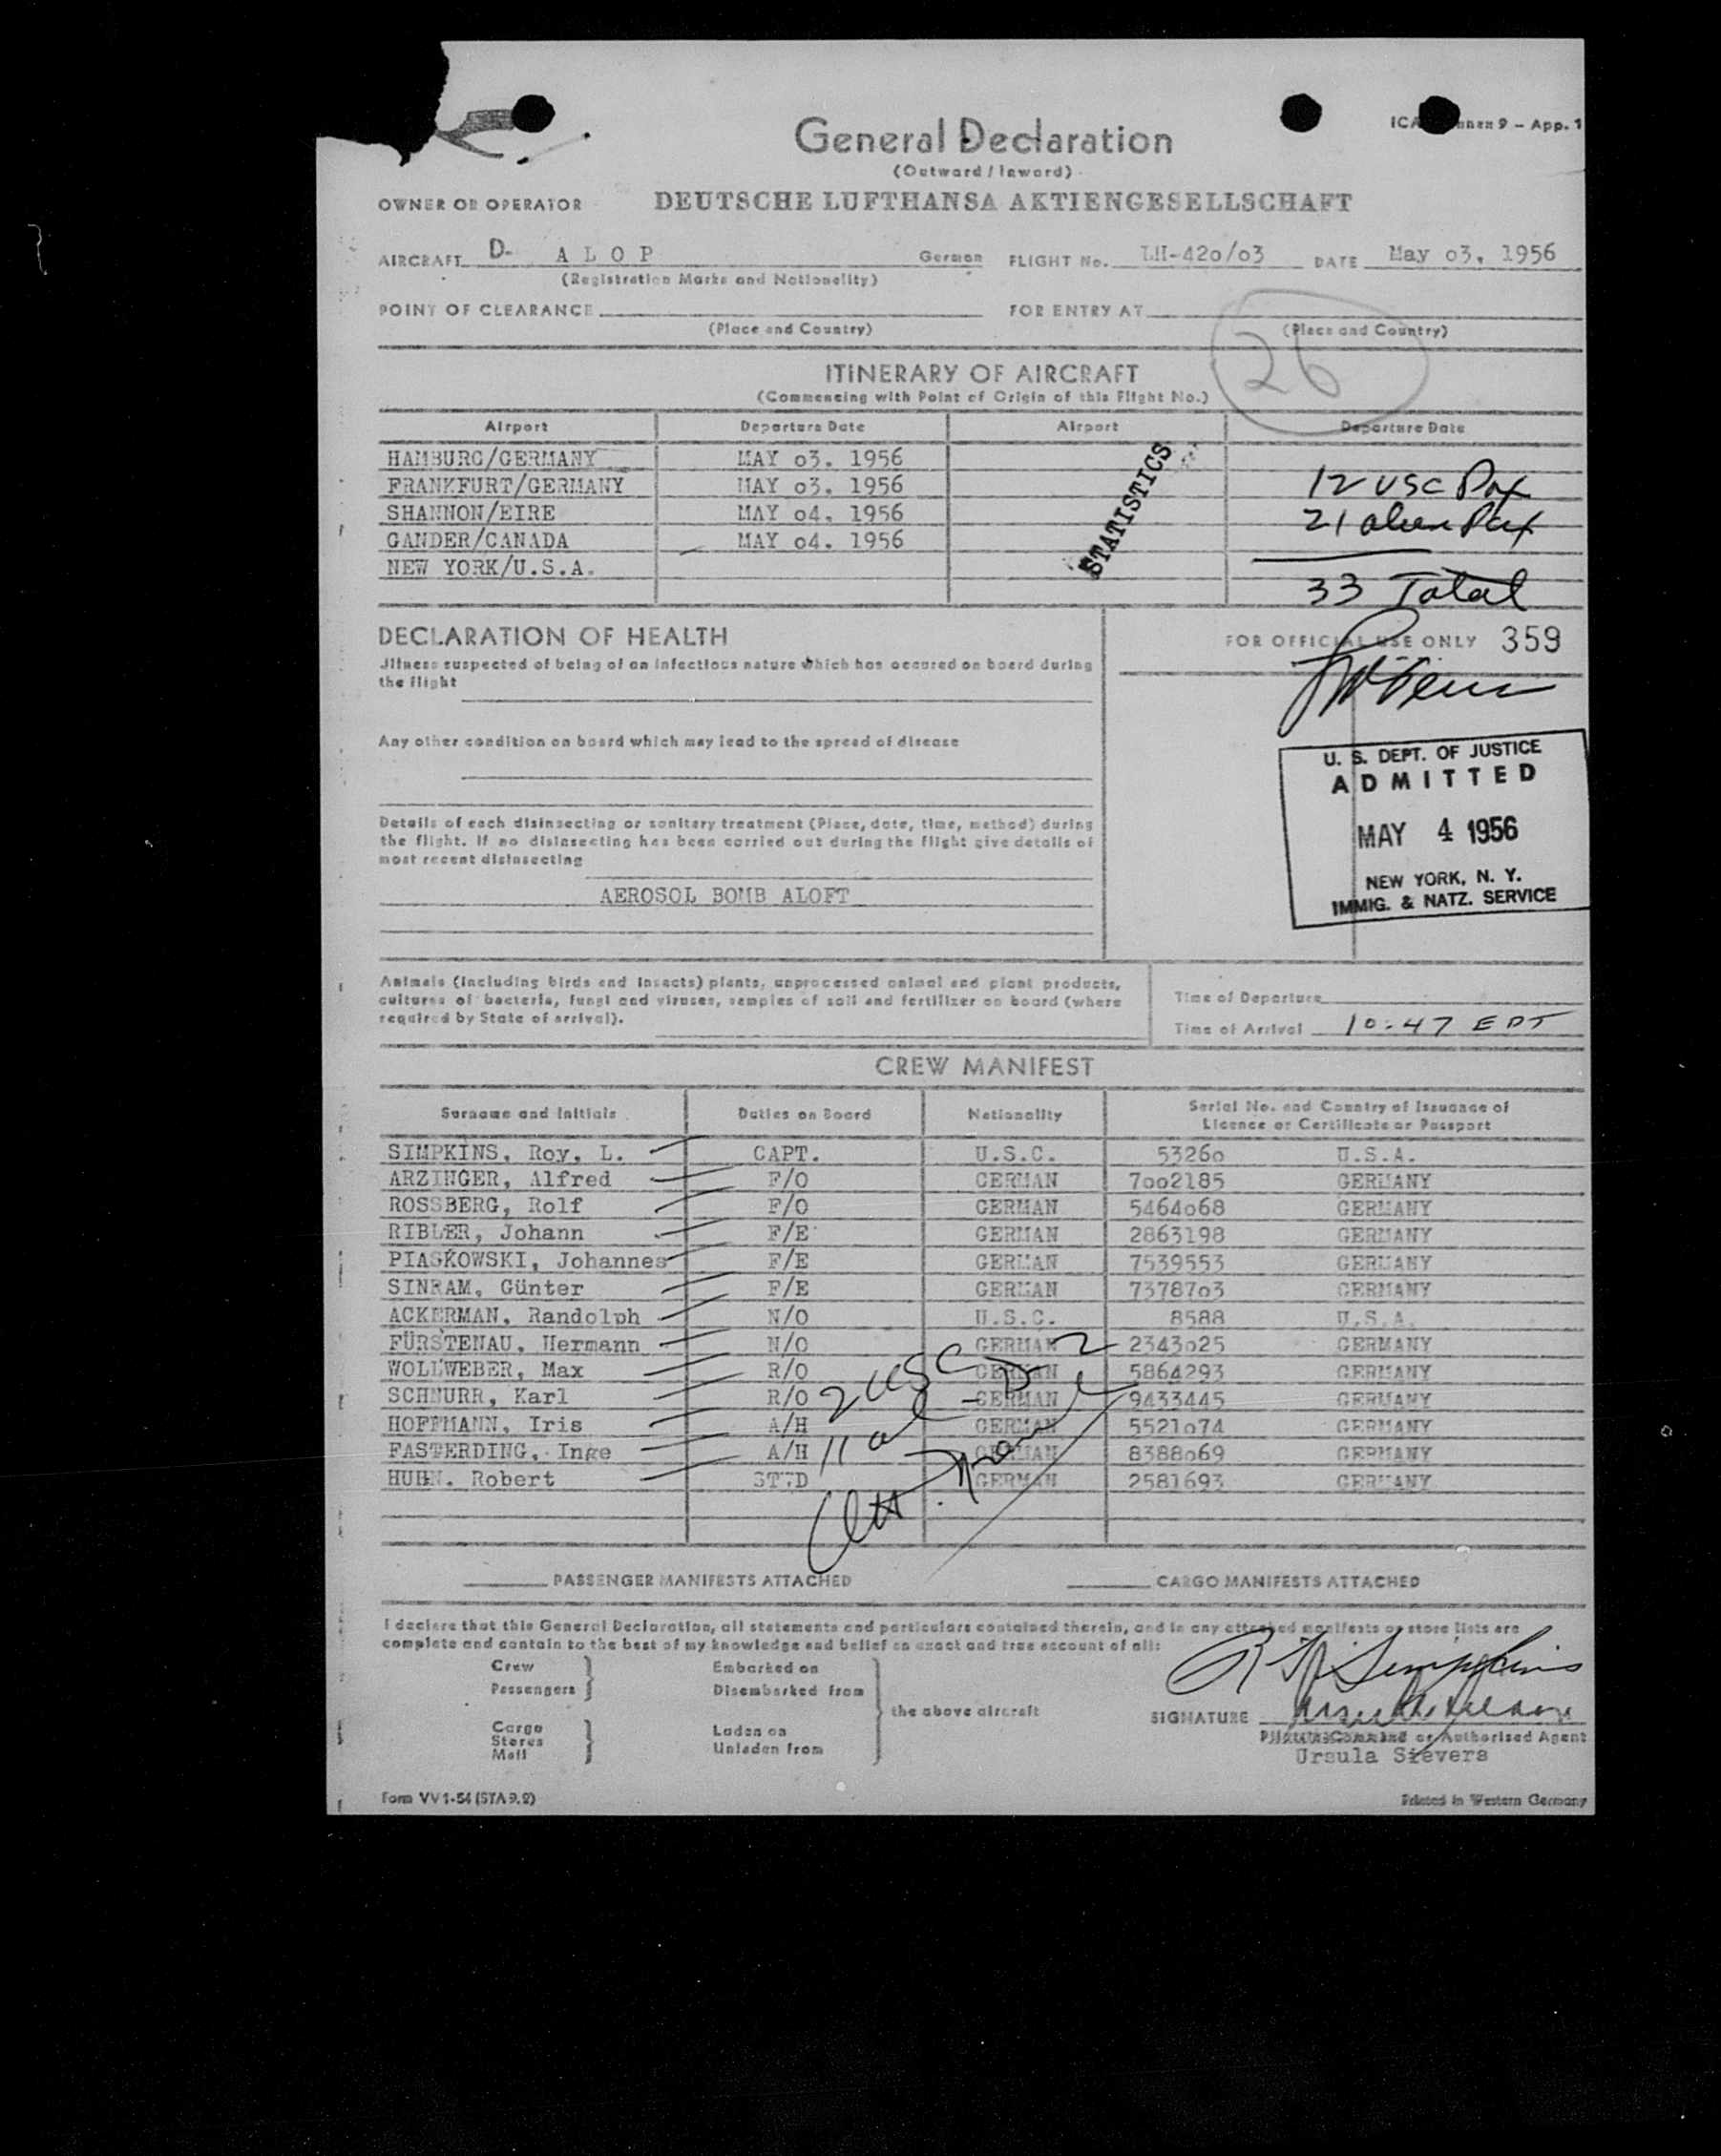 ICA nnex 9 – App. 1
General Declaration
(Outward / Inward)
OWNER OR OPERATOR DEUTSCHE LUFTHANSA AKTIENGESELLSCHAFT
AIRCRAFT D- A L O P German FLIGHT No. LH-420/03 DATE May 03, 1956
(Registration Marks and Nationality)
POINT OF CLEARANCE FOR ENTRY AT
(Place and Country) (Place and Country)
26
ITINERARY OF AIRCRAFT
(Commencing with Point of Origin of this Flight No.)
Airport Departure Date Airport Departure Date
HAMBURG/GERMANY MAY 03. 1956
FRANKFURT/GERMANY MAY 03. 1956 12 USC Pax
SHANNON/EIRE MAY 04. 1956 21 alien Pax
GANDER/CANADA MAY 04. 1956
NEW YORK/U.S.A. 33 Total
STATISTICS
DECLARATION OF HEALTH FOR OFFICIAL USE ONLY 359
Illness suspected of being of an infectious nature which has occured on board during
the flight
Any other condition on board which may lead to the spread of disease
U. S. DEPT. OF JUSTICE
ADMITTED
MAY 4 1956
NEW YORK, N. Y.
IMMIG. & NATZ. SERVICE
Details of each disinsecting or sanitary treatment (Place, date, time, method) during
the flight. If no disinsecting has been carried out during the flight give details of
most recent disinsecting
AEROSOL BOMB ALOFT
Animals (including birds and insects) plants, unprocessed animal and plant products,
cultures of bacteria, fungi and viruses, samples of soil and fertilizer on board (where
required by State of arrival).
Time of Departure
Time of Arrival 10:47 EDT
CREW MANIFEST
Surname and Initials Duties on Board Nationality Serial No. and Country of Issuance of
Licence or Certificate or Passport
SIMPKINS, Roy, L. CAPT. U.S.C. 53260 U.S.A.
ARZINGER, Alfred F/O GERMAN 7002185 GERMANY
ROSSBERG, Rolf F/O GERMAN 5464068 GERMANY
RIBLER, Johann F/E GERMAN 2863198 GERMANY
PIASKOWSKI, Johannes F/E GERMAN 7539553 GERMANY
SINRAM, Günter F/E GERMAN 7378703 GERMANY
ACKERMAN, Randolph N/O U.S.C. 8588 U.S.A.
FÜRSTENAU, Hermann N/O GERMAN 2343025 GERMANY
WOLLWEBER, Max R/O GERMAN 5864293 GERMANY
SCHNURR, Karl R/O GERMAN 9433445 GERMANY
HOFFMANN, Iris A/H GERMAN 5521074 GERMANY
FASTERDING, Inge A/H GERMAN 8388069 GERMANY
HUHN. Robert STWD GERMAN 2581693 GERMANY
2 USC
PASSENGER MANIFESTS ATTACHED CARGO MANIFESTS ATTACHED
I declare that this General Declaration, all statements and particulars contained therein, and in any attached manifests or store lists are
complete and contain to the best of my knowledge and belief an exact and true account of all:
Crew Embarked on
Passengers Disembarked from
the above aircraft
Cargo Laden on
Stores
Mail Unladen from
R L Simpkins
SIGNATURE
Pilot in Command or Authorised Agent
Ursula Sievers
Form VV 1-54 (STA 9.2) Printed in Western Germany